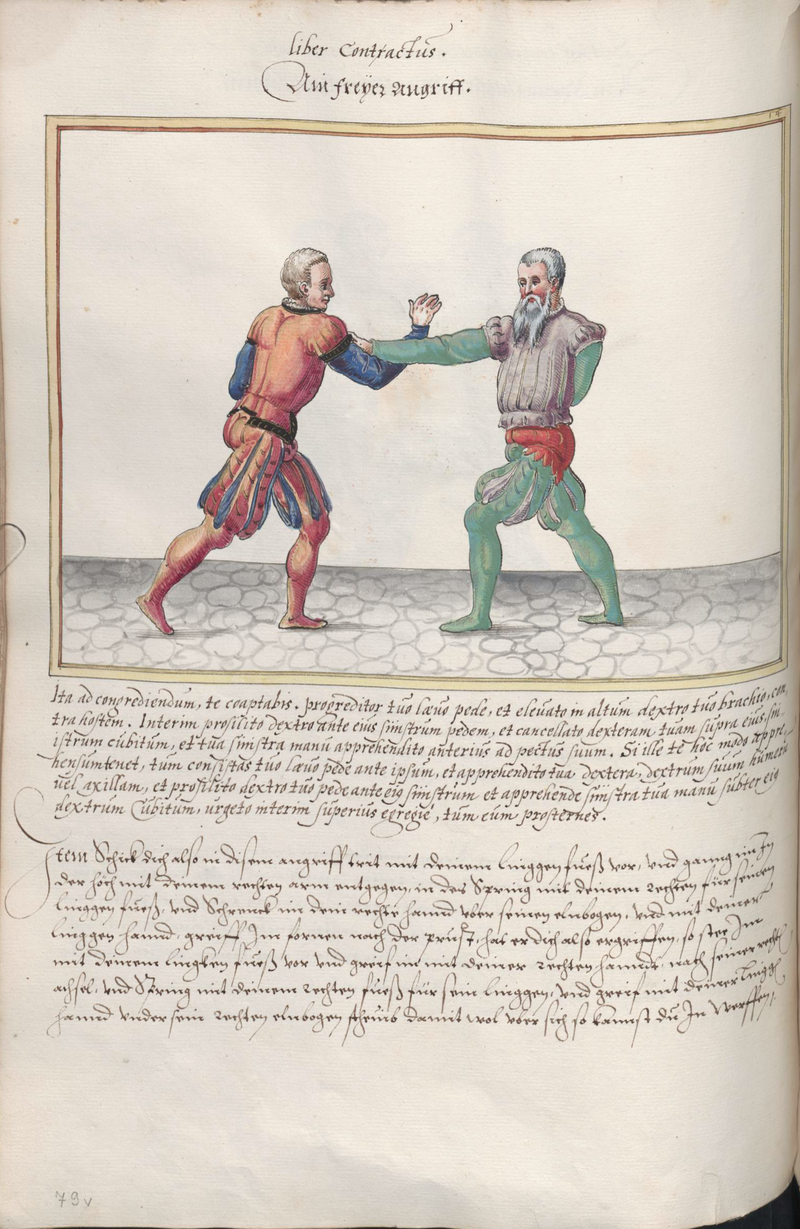 liber Contractus.
Ain freyer Angriff.
Ita ad congrediendum, te coaptabis. progreditor tuo laevo pede, et elevato in altum dextro tuo brachio, con,
tra hostem. Interim prosilito dextro ante eius sinistrum pedem, et cancellato dexteram tuam supra eius sin,
istrum cubitum, et tua sinistra manu apprehendito anterius ad pectus suum. Si ille te hoc modo appre,
hensum tenet, tum consistas tuo laevo pede ante ipsum, et apprehendito tua dextera, dextrum suum humerum
vel axillam, et prosilito dextro tuo pede ante eius sinistrum et apprehende sinistra tua manu subter eius
dextrum Cubitum, urgeto interim superius egregie, tum eum prosternes.
Item Schick dich also in disem angriff trit mit deinem linggen fuesß vor, vnd ganng im In
der höch mit deinem rechten arm entgegen, in des Spring mit deinem rechten für seinen
linggen fuesß, vnd Schrenck im dein rechte hannd vber seinen elnbogen, vnd mit deiner
linggen hannd, greiff Im fornen nach der prust, hat er dich also ergriffen, so stee Im
mit deinem lingken fuesß vor vnd greif im mit deiner rechten hannd, nach seiner rechten
achsel, vnd Spring mit deinem rechten fuesß für sein linggen, vnd greif mit deiner lingge
hannd vnder sein rechten elnbogen scheub damit wol vber sich so kannst du In werffen,
79v